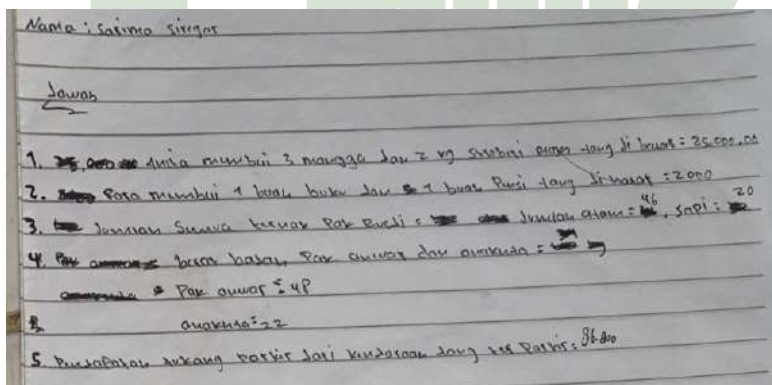 Nama : Sarima Siregar
Jawab
1. Anisa membeli 3 mangga dan 2 kg strobri yang di bayar = 25.000,00
2. Rosa membeli 1 buah buku dan 1 buah Pensi yang di bayar = 2000
3. Jumlah Semua ternak Pak Budi = Jumlah ayam = 46, sapi = 20
4. berat badan Pak anwar dan anaknya =
Pak anwar = 48
anaknya = 22
5. Pendapatan tukang parkir dari kendaraan yang ter Parkir =